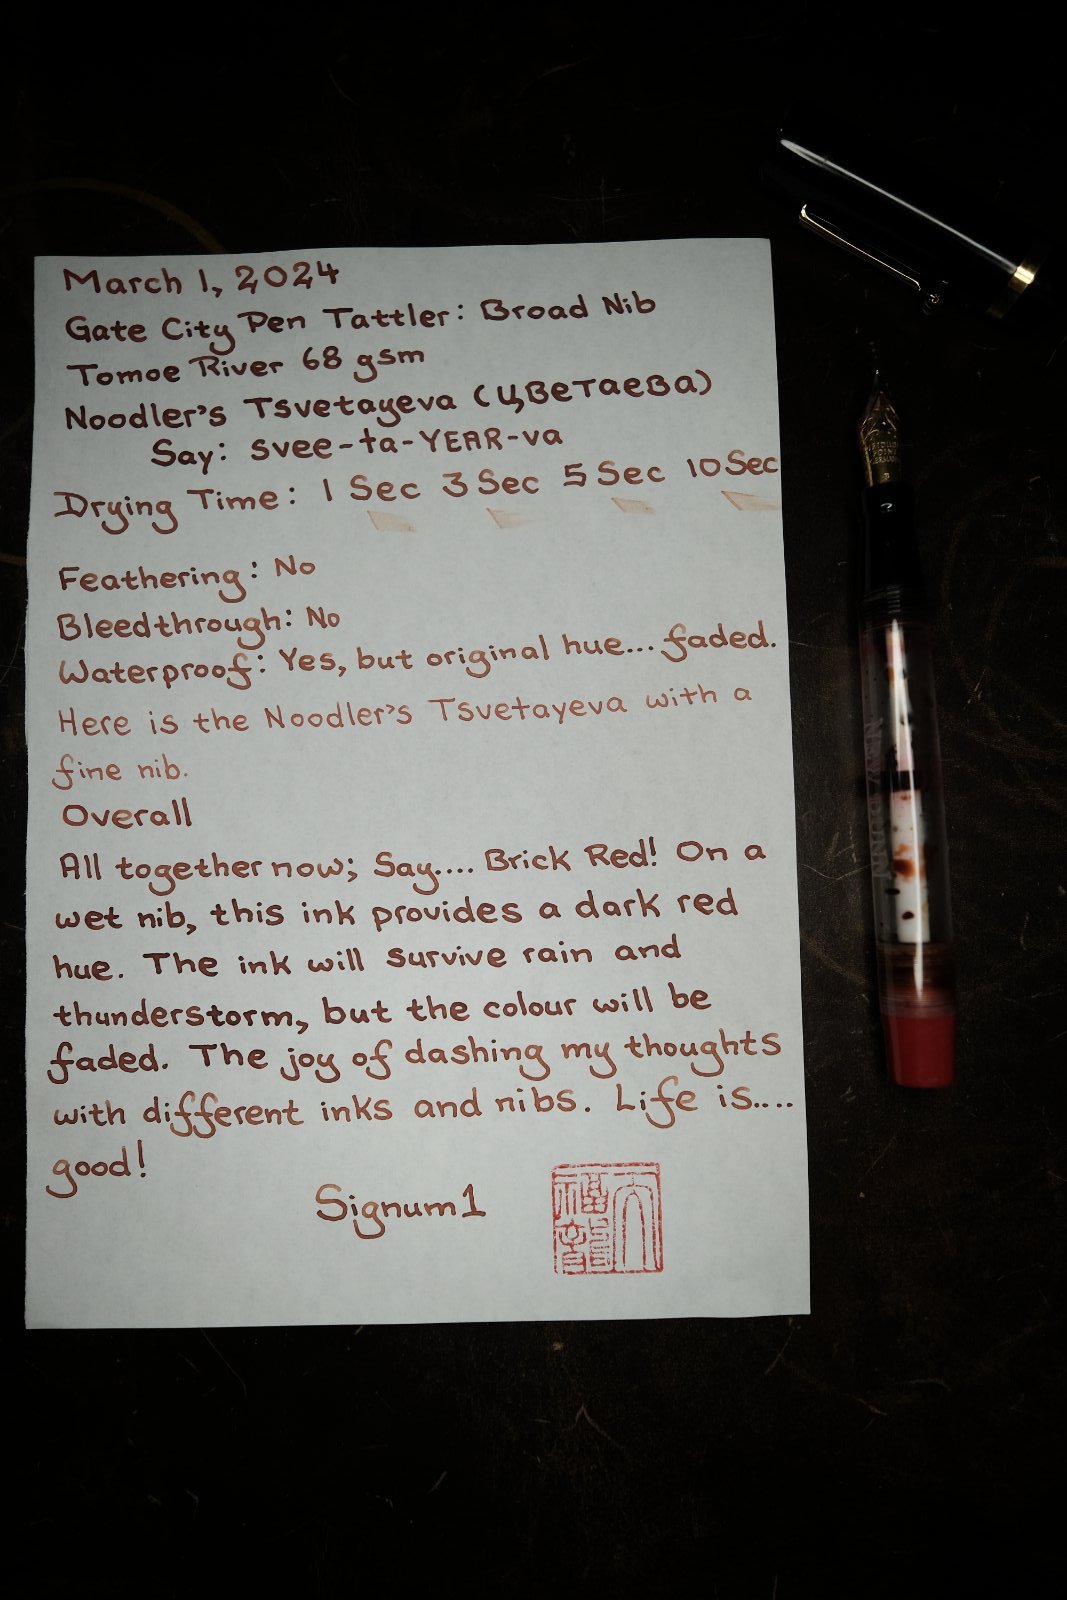 March 1, 2024
Gate City Pen Tattler: Broad Nib
Tomoe River 68 gsm
Noodler's Tsvetayeva (Цветаева)
Say: Svee-ta-YEAR-va
Drying Time: 1 Sec 3 Sec 5 Sec 10 Sec
Feathering: No
Bleedthrough: No
Waterproof: Yes, but original hue... faded.
Here is the Noodler's Tsvetayeva with a
fine nib.
Overall
All together now; Say.... Brick Red! On a
wet nib, this ink provides a dark red
hue. The ink will survive rain and
thunderstorm, but the colour will be
faded. The joy of dashing my thoughts
with different inks and nibs. Life is....
good!
Signum1